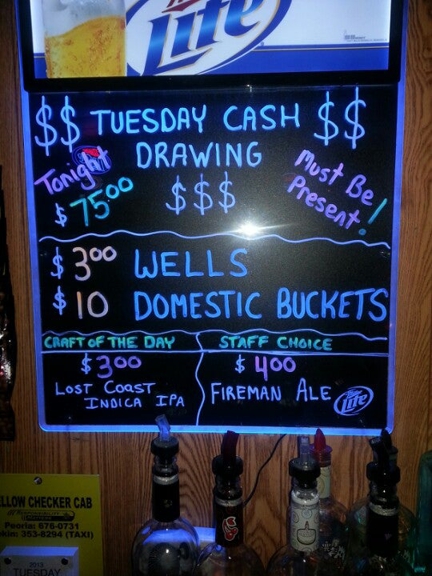 Lite
$$ TUESDAY CASH $$
DRAWING
Tonight
$7500
$$$
Must Be
Present!
$300 WELLS
$10 DOMESTIC BUCKETS
CRAFT OF THE DAY
$300
LOST COAST
INDICA IPA
STAFF CHOICE
$400
FIREMAN ALE
Lite
ELLOW CHECKER CAB
Peoria: 676-0731
kin: 353-8294 (TAXI)
2013
TUESDAY